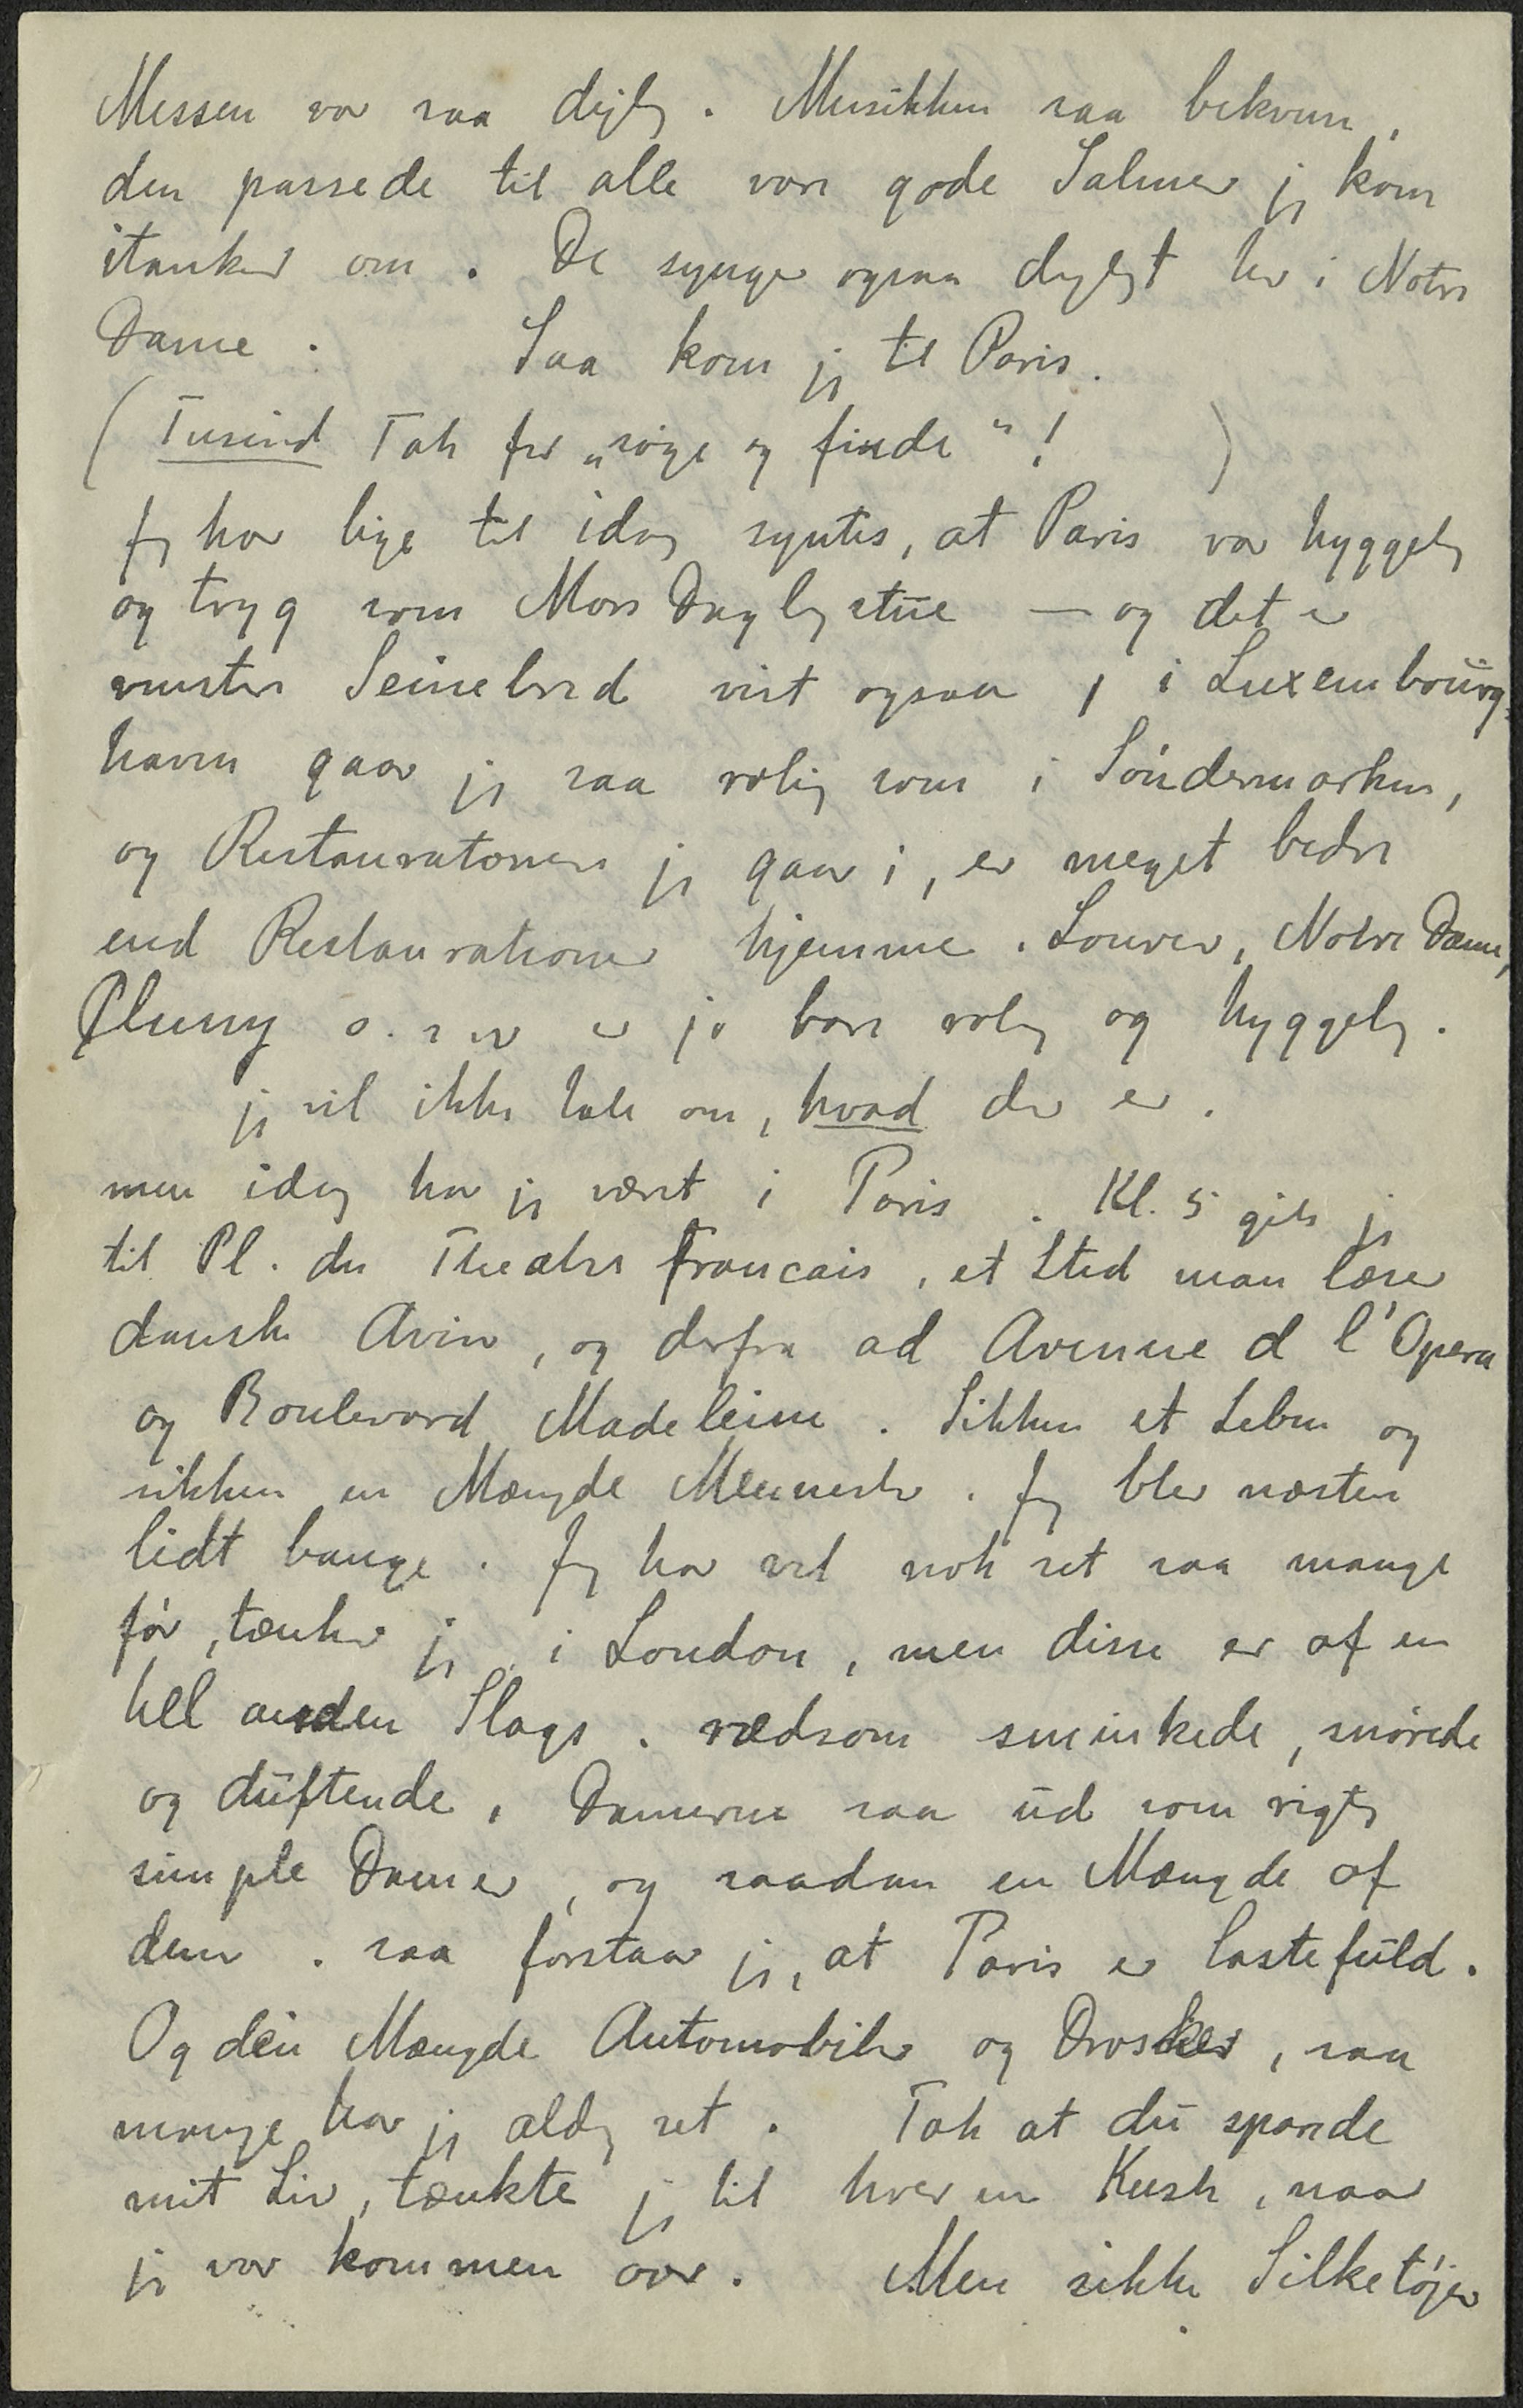 Messen var saa dejlig. Musikken saa bekvem,
den passede til alle vore gode Salmer jeg kom
itanker om. De synger ogsaa dejligt her i Notre
Dame. Saa kom jeg til Paris.
(Tusind Tak for „søge og finde“!)
Jeg har lige til idag syntes, at Paris var hyggelig
og tryg som Mors Dagligstue — og det er
venstre Seinebred vist ogsaa, i Luxembourg-
haven gaar jeg saa rolig som i Søndermarken,
og Restaurationen jeg gaar i, er meget bedre
end Restaurationer hjemme. Louvre, Notre Dame,
Cluny o. s v er jo bare rolig og hyggelig.
jeg vil ikke tale om, hvad der er.
men idag har jeg været i Paris. Kl. 5 gik jeg
til Pl. du Theatre Francais, et Sted man læser
danske Aviser, og derfra ad Avenue d l'Opera
og Boulevard Madeleine. Sikken et Leben og
sikken en Mængde Mennesker. Jeg blev næsten
lidt bange. Jeg har vel nok set saa mange
før, tænker jeg, i London, men disse er af en
hel anden Slags. rædsom sminkede, snørede
og duftende, Damerne saa ud som rigtig
simple Damer, og saadan en Mængde af
dem. saa forstaar jeg, at Paris er lastefuld.
Og den Mængde Automobiler og Drosker, saa
mange har jeg aldrig set. Tak at du sparede
mit Liv, tænkte jeg til hver en Kusk, naar
jeg var kommen over. Men sikke Silketøjer